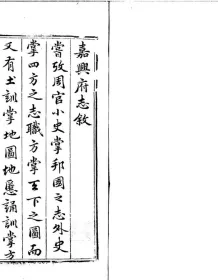 嘉興府志敘
嘗攷周官小史掌邦國之志外史
掌四方之志職方掌天下之圖而
又有土訓掌地圖地慝誦訓掌方